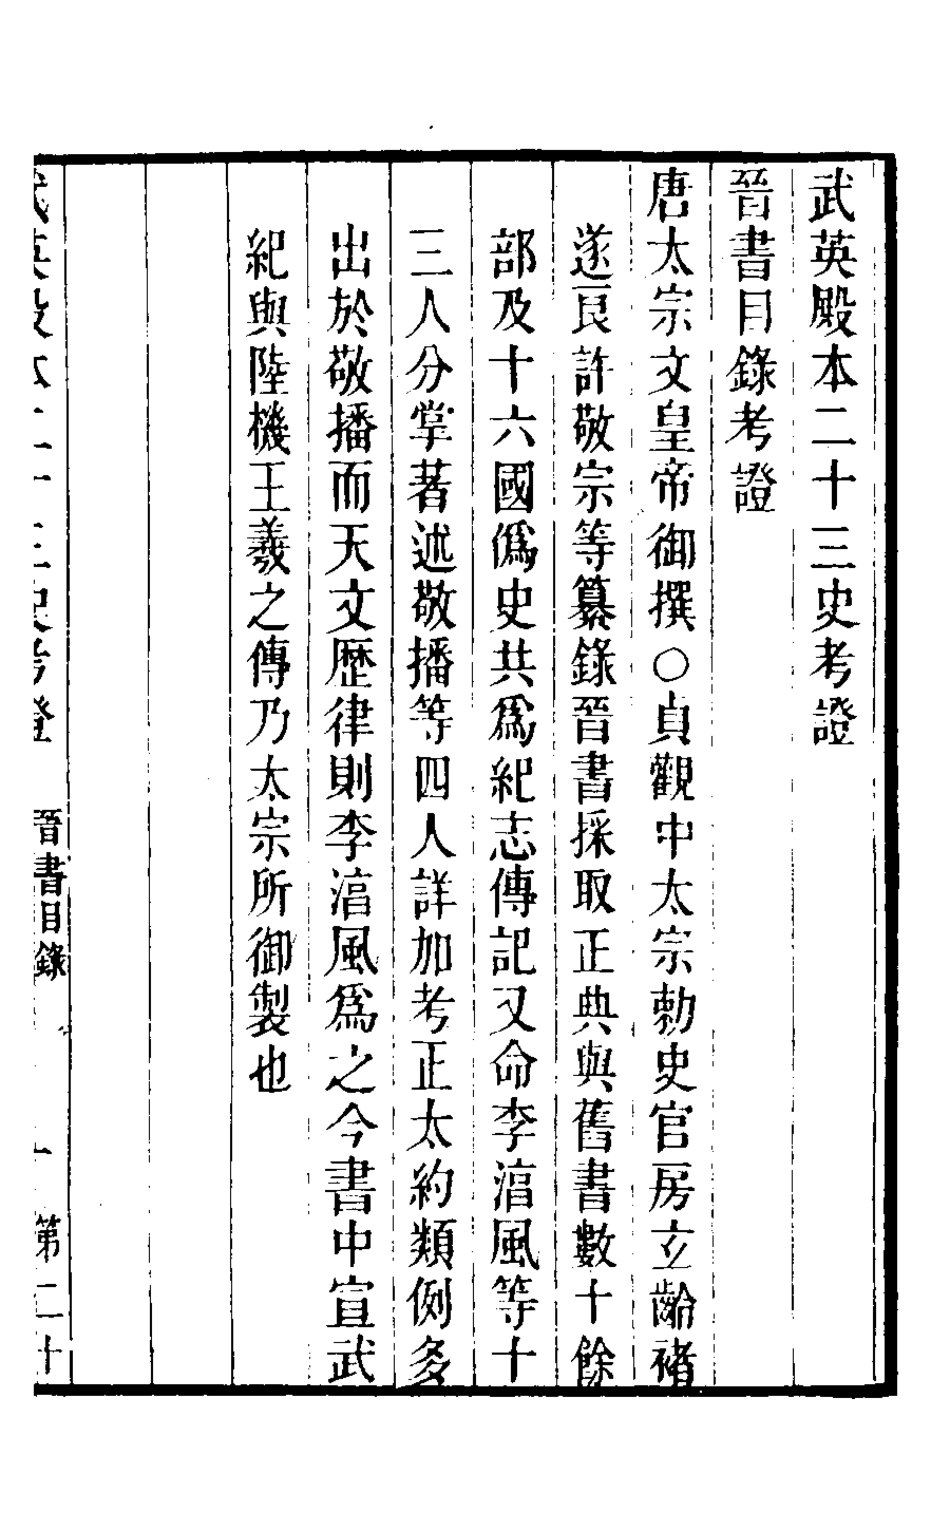 武英殿本二十三史考證
晉書目錄考證
唐太宗文皇帝御撰○貞觀中太宗勅史官房玄齡褚
遂良許敬宗等纂錄晉書採取正典與舊書數十餘
部及十六國僞史共爲紀志傳記又命李淳風等十
三人分掌著述敬播等四人詳加考正太約類例多
出於敬播而天文歷律則李淳風爲之今書中宣武
紀與陸機王羲之傳乃太宗所御製也
武英殿本二十三史考證 晉書目錄 一 第二十